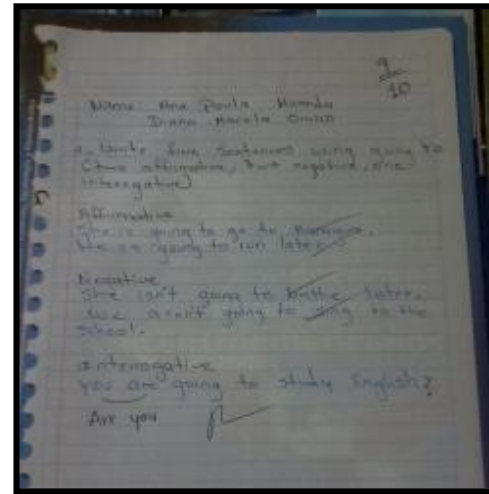 9
10
Name: Ana Paola Miranda
Diana
a. Write five sentences using going to
(two affirmative, two negative, one
interrogative)
Affirmative
She is going to go to Managua.
He is going to run later.
Negative
She isn't going to bathe later.
We aren't going to sing to the
school.
interrogative
You are going to study English?
Are you